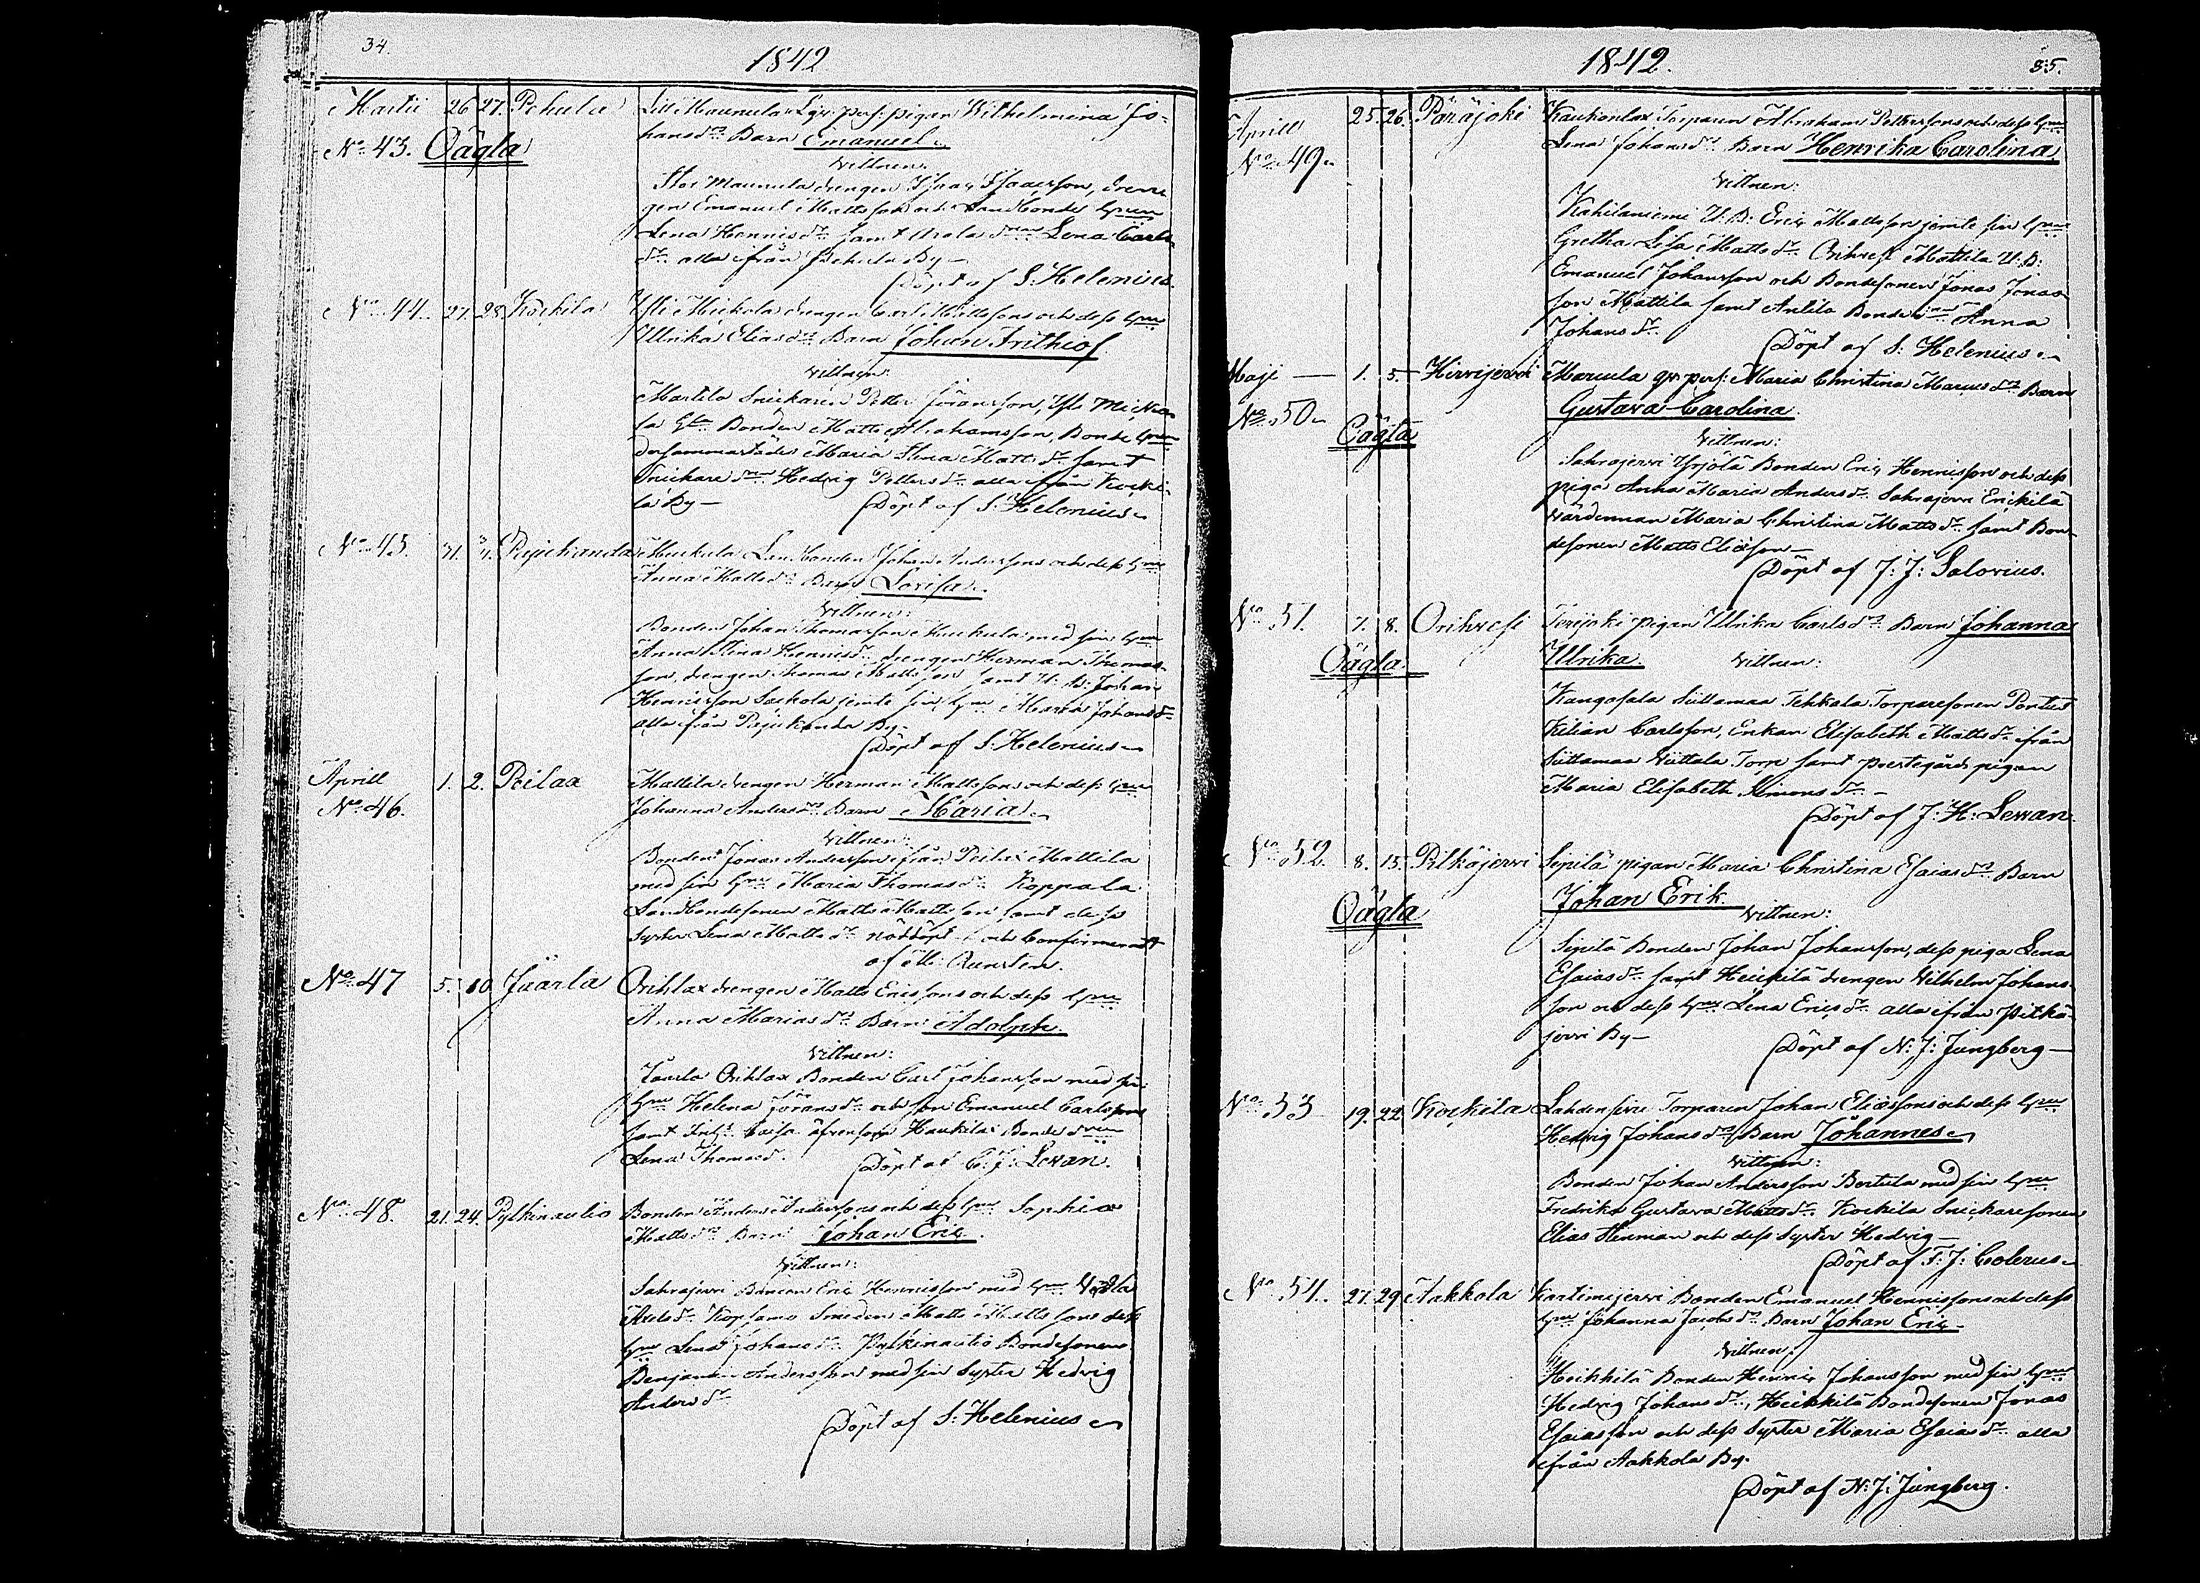 34.
1842
Martii 26 27. Pohula Lill Maunula Lgr. pers. pigan Wilhelmina Jo-
No 43. Oägta hansdr Barn Emanuel.
Vittnen:
Stor Maunula drengen Isaac Isaacsson, dren-
gen Emanuel Mattsson och Landbonde hru
Lena Hennisdr samt Lena Carls
dr alla ifrån Pohula By—
Döpt af S: Helenius.
No 44. 27. 28. Kockila Yli Mickola drengen Carl Mattssons och dess hru
Ullrika Eliasdr Barn Johan Frithiof.
Vittnen:
Martila Snickaren Petter Göransson, Yli Micko-
la Bonden Matts Abrahamsson, Bonde hru
dersammastädes Maria Stina Mattsdr samt
Snickare Hedvig Pettersdr alla ifrån Kocki-
la By— Döpt af S: Helenius
No 45. 31. Bonden Johan Anderssons och dess hru
Anna Mattsdr Barn Lovisa.
Vittnen:
Bonden Johan Thomasson med sin hru
Anna Stina Hennisdr, drengen Herman Thomas-
son, drengen Thomas Mattsson samt U: B: Johan
Hennisson jemte sin hru Maria Johansdr
alla ifrån By.
Döpt af S: Helenius
Aprill 1. 2. Peilax Mattila drengen Herman Mattssons och dess hru
No 46. Johanna Andersdr Barn Maria.
Vittnen:
Bonden Jonas Andersson ifrån Peilax Mattila
med sin hru Maria Thomasdr Koppala
Landbondesonen Matts Mattsson samt dess
Syster Lena Mattsdr nöddöpt och Confirmeradt
af M: Runsten.
No 47 5. 10 Jäärla Orihlax drengen Matts Ericssons och dess hru
Anna Mariasdr Barn Adolph.
Vittnen:
Jäärla Orihlax Bonden Carl Johansson med sin
hru Helena Göransdr och son Emanuel Carlsson
samt Caisa Haukila Bonde
Lena Thomasdr. Döpt af C: J: Lewan.
No 48. 21. 24. Pylkinautio Bonden Anders Anderssons och dess hru Sophia
Mattsdr Barn Johan Eric.
Vittnen:
Sahrajervi Bonden Eric Hennisson med hru
Axelsdr Kopsamo Smeden Matts Mattsson dess
hru Lena Johansdr Pylkinautio Bondesonen
Benjamin Andersson med sin Syster Hedvig
Andersdr
Döpt af S: Helenius
1842.
35.
Aprill 25. 26. Päräjoki Kaukonlax Torparen Abraham Petterssons och dess hru
No 49. Lena Johansdr Barn Henrika Carolina.
Vittnen:
Kahilaniemi U: B: Eric Mattsson jemte sin hru
Gretha Lisa Mattsdr Orihvesi Mattila U: B:
Emanuel Johansson och Bondesonen Jonas Jonas-
son Mattila samt Antila Bonde Anna
Johansdr
Döpt af S: Helenius
Maji — 1. 5. Hirvijervi Marcula qv. pers. Maria Christina Marcusdr Barn
No 50 Gustava Carolina.
Oägta Vittnen:
Sahrajervi Yrjölä Bonden Eric Hennisson och dess
piga Anna Maria Andersdr Sahrajervi Erickilä
värdinnan Maria Christina Mattsdr samt Bon-
desonen Matts Eliasson—
Döpt af J: J: Salovius.
No 51. 7. 8. Orihvesi Terijoki pigan Ullrika Carlsdr Barn Johanna
Oägta Ullrika. Vittnen:
Kangasala Suttamaa Tehkala Torparesonen Pontus
Kilian Carlsson, Enkan Elisabeth Mattsdr ifrån
Suttamaa Torp samt prestegårds pigan
Maria Elisabeth Simonsdr—
Döpt af J: H: Lewan
No 52. 8. 15. Pitkäjervi Sepilä pigan Maria Christina Esaiasdr Barn
Oägta Johan Erik. Vittnen:
Sepilä Bonden Johan Johansson, dess piga Lena
Esaiasdr samt Heickilä drengen Vilhelm Johans-
son och dess hru Lena Ericsdr alla ifrån Pitkä-
jervi By—
Döpt af N: J: Jungberg—
No 53 19. 22. Kockila Torparen Johan Eliassons och dess hru
Hedvig Johansdr Barn Johannes
Vittnen:
Bonden Johan Andersson Bertula med sin hru
Fredrika Gustava Mattsdr Kockila Snickaresonen
Elias Herman och dess Syster Hedvig—
Döpt af F: J: Colerus
No 54. 27. 29 Aakkola Kartimejervi Bonden Emanuel Hennissons och dess
hru Johanna Jacobsdr Barn Johan Eric—
Vittnen:
Heikkilä Bonden Henric Johansson med sin hru
Hedvig Johansdr, Heikkilä Bondesonen Jonas
Esaiasson och dess Syster Maria Esaiasdr alla
ifrån Aakkola By.
Döpt af N: J: Jungberg.